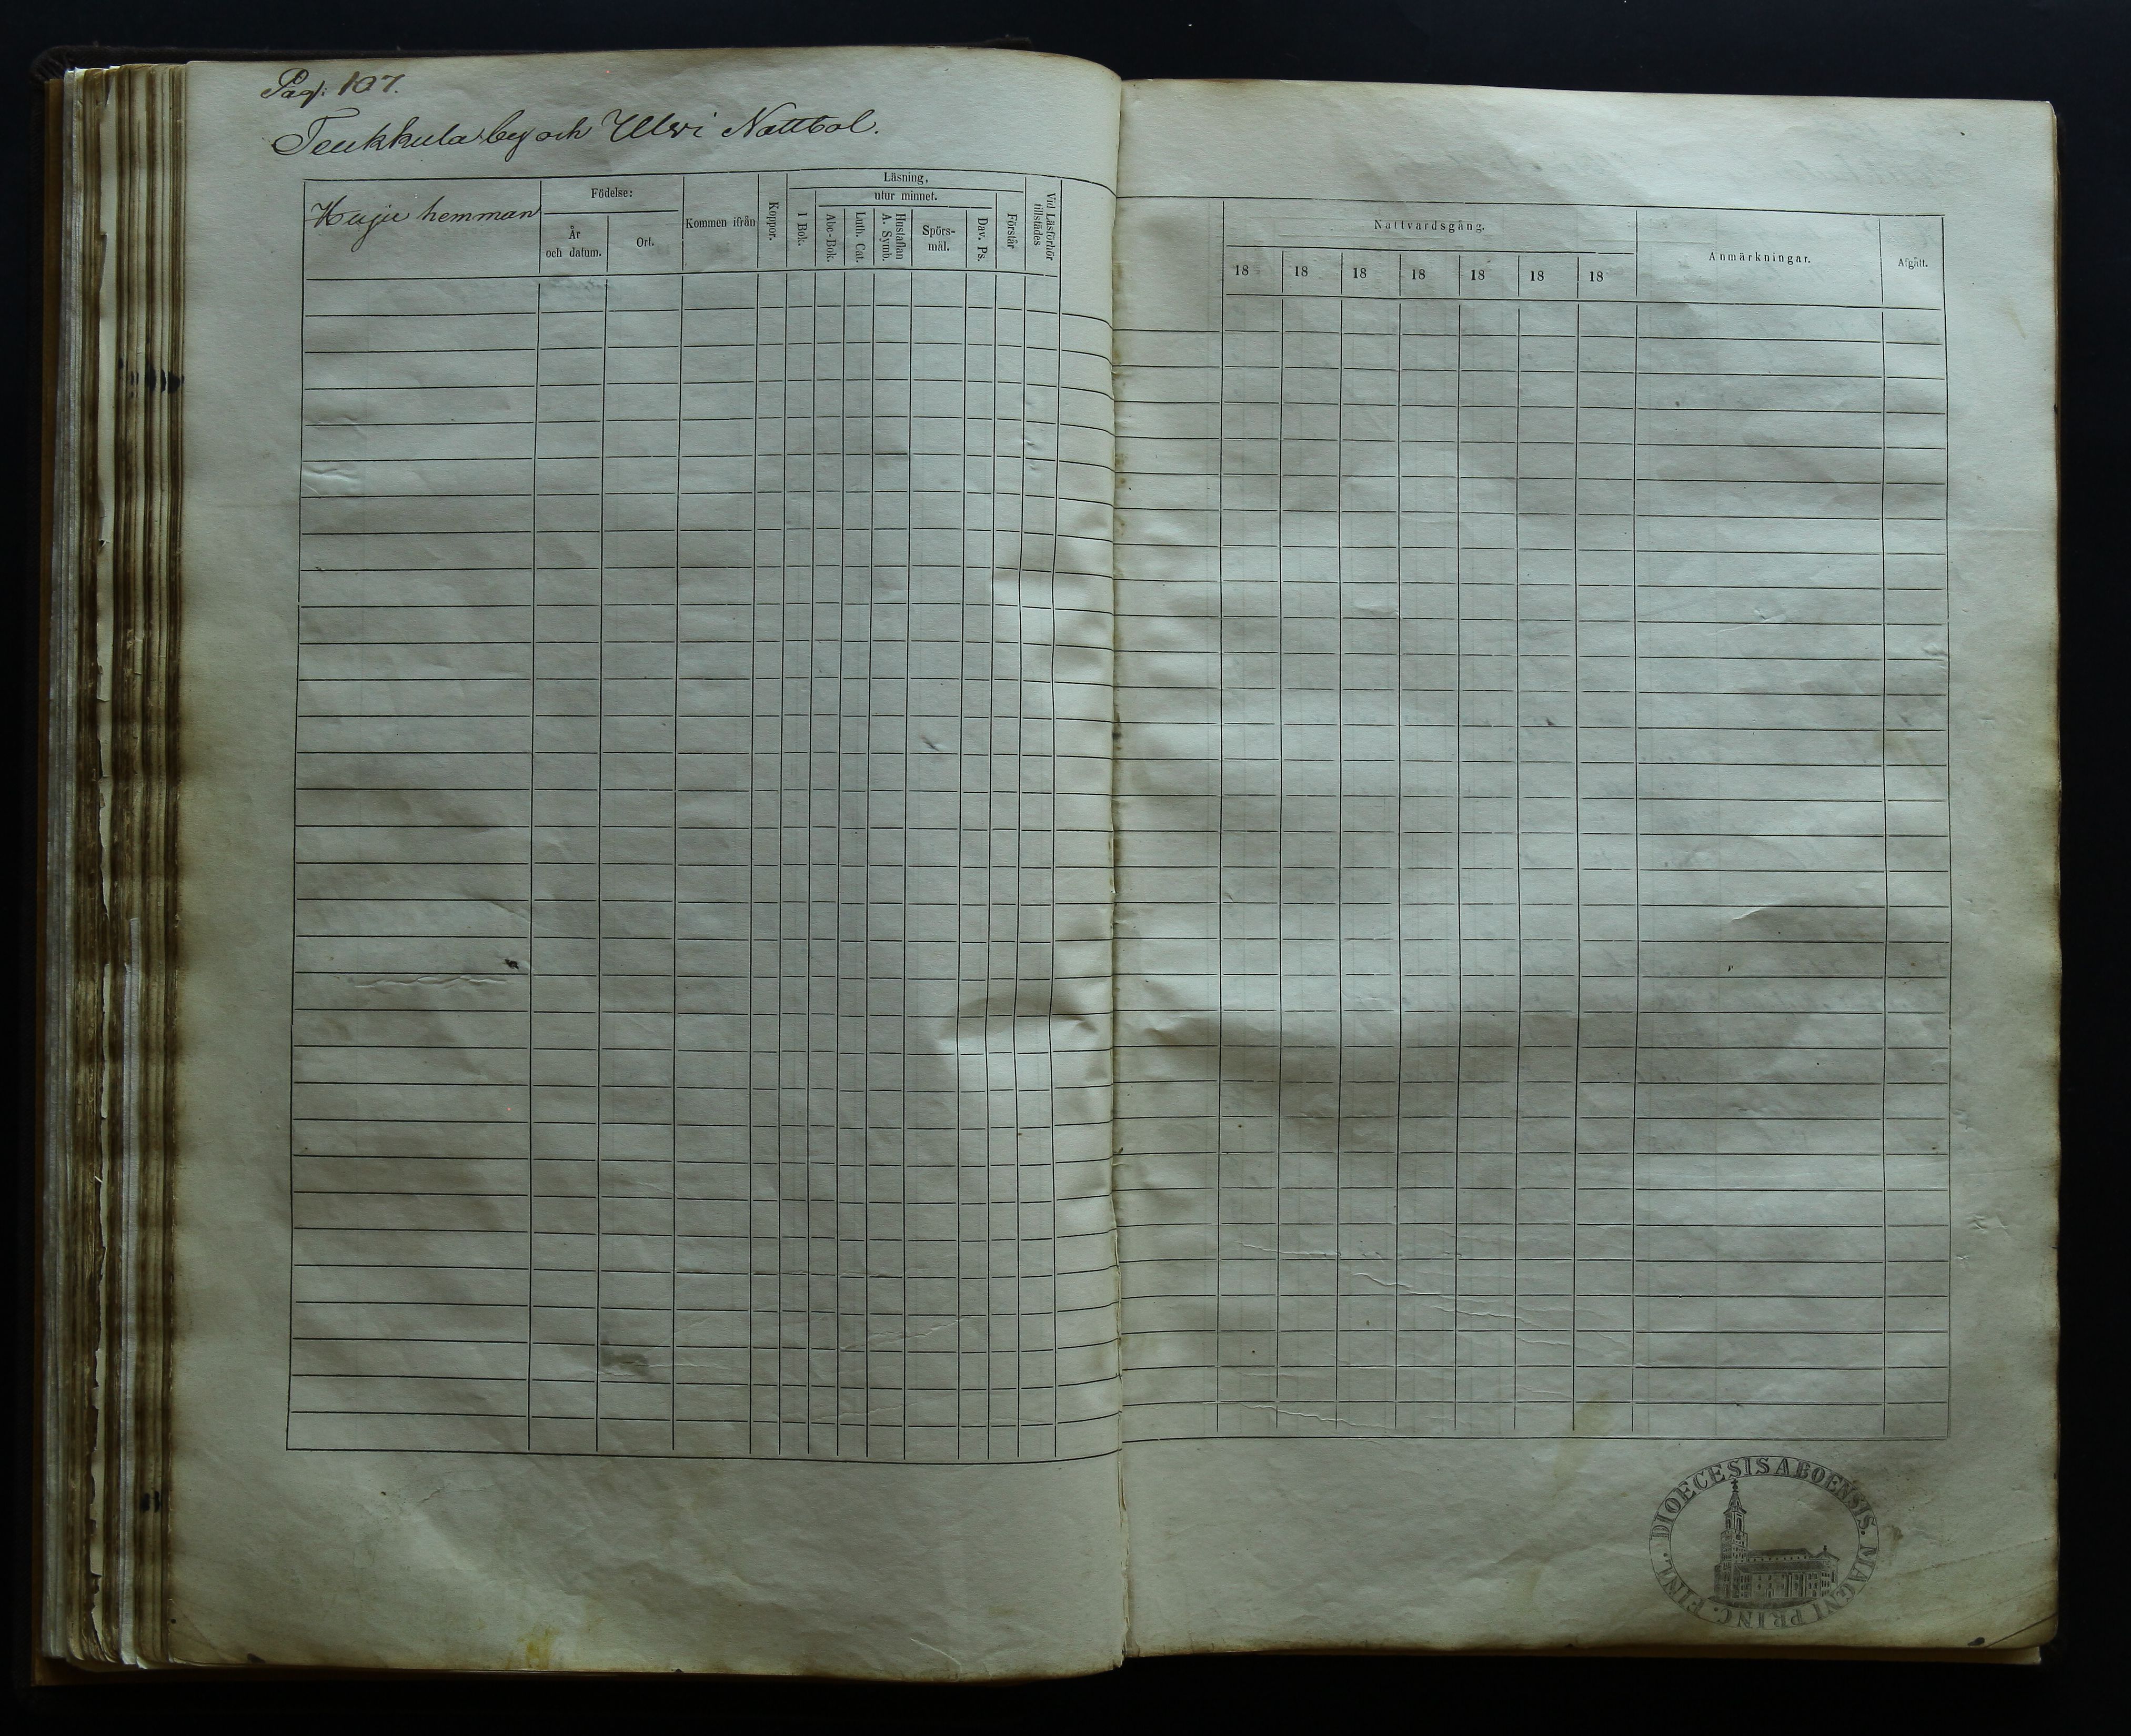 Pag: 107.
Teukkula by och Ylwi Nattbol.
Huju hemman
Födelse:
År och datum.
Ort.
Kommen ifrån
Koppor.
Läsning,
utur minnet.
I Bok.
Abc-Bok.
Luth. Cat.
Hustaflan A. Symb.
Spörs-mål.
Dav. Ps.
Förstår
Vid Läsförhör tillstädes
Nattvardsgång.
18 18 18 18 18 18 18
Anmärkningar.
Afgått.
DIOECESIS ABOENSIS. MAGNI PRINC. FINL.